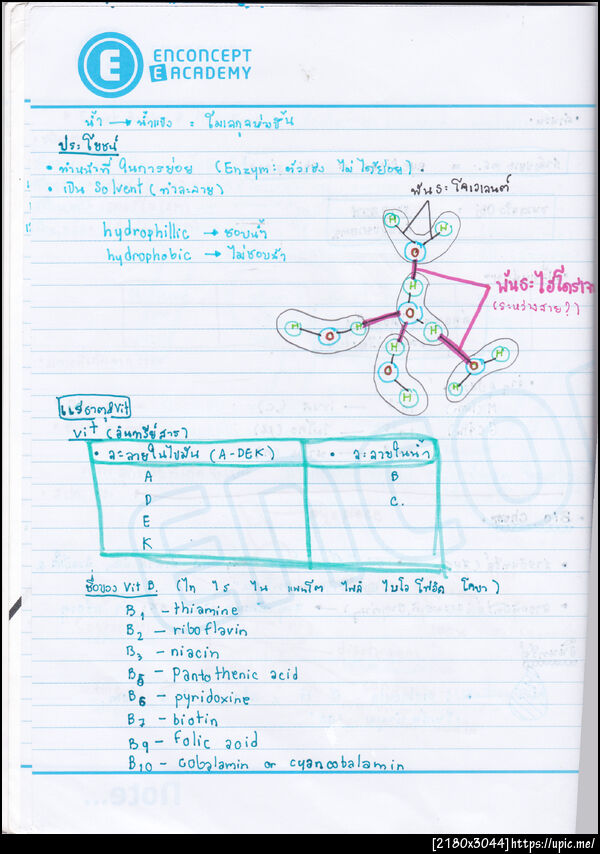 ENCONCEPT
E ACADEMY
น้ำ → น้ำแข็ง = โมเลกุลห่างขึ้น
ประโยชน์
• ทำหน้าที่ในการย่อย (Enzym: ตัวเร่ง ไม่ได้ย่อย)
• เป็น Solvent (ทำละลาย)
พันธะโคเวเลนต์
hydrophillic → ชอบน้ำ
hydrophobic → ไม่ชอบน้ำ
H H
O
H
พันธะไฮโดรเจน
(ระหว่างสาย?)
O
H O H
H
H
O H
O H
H
แร่ธาตุ&Vit
Vit (อินทรีย์สาร)
• ละลายในไขมัน (A-DEK) • ละลายในน้ำ
A B
D C.
E
K
ชื่อของ Vit B. (ไท ไร ไน แพนโต ไพริ ไบโอ โฟลิค โคบา)
B1 – thiamine
B2 – riboflavin
B3 – niacin
B5 – Pantothenic acid
B6 – pyridoxine
B7 – biotin
B9 – folic acid
B10 – cobalamin or cyanocobalamin
[2180x3044]https://upic.me/